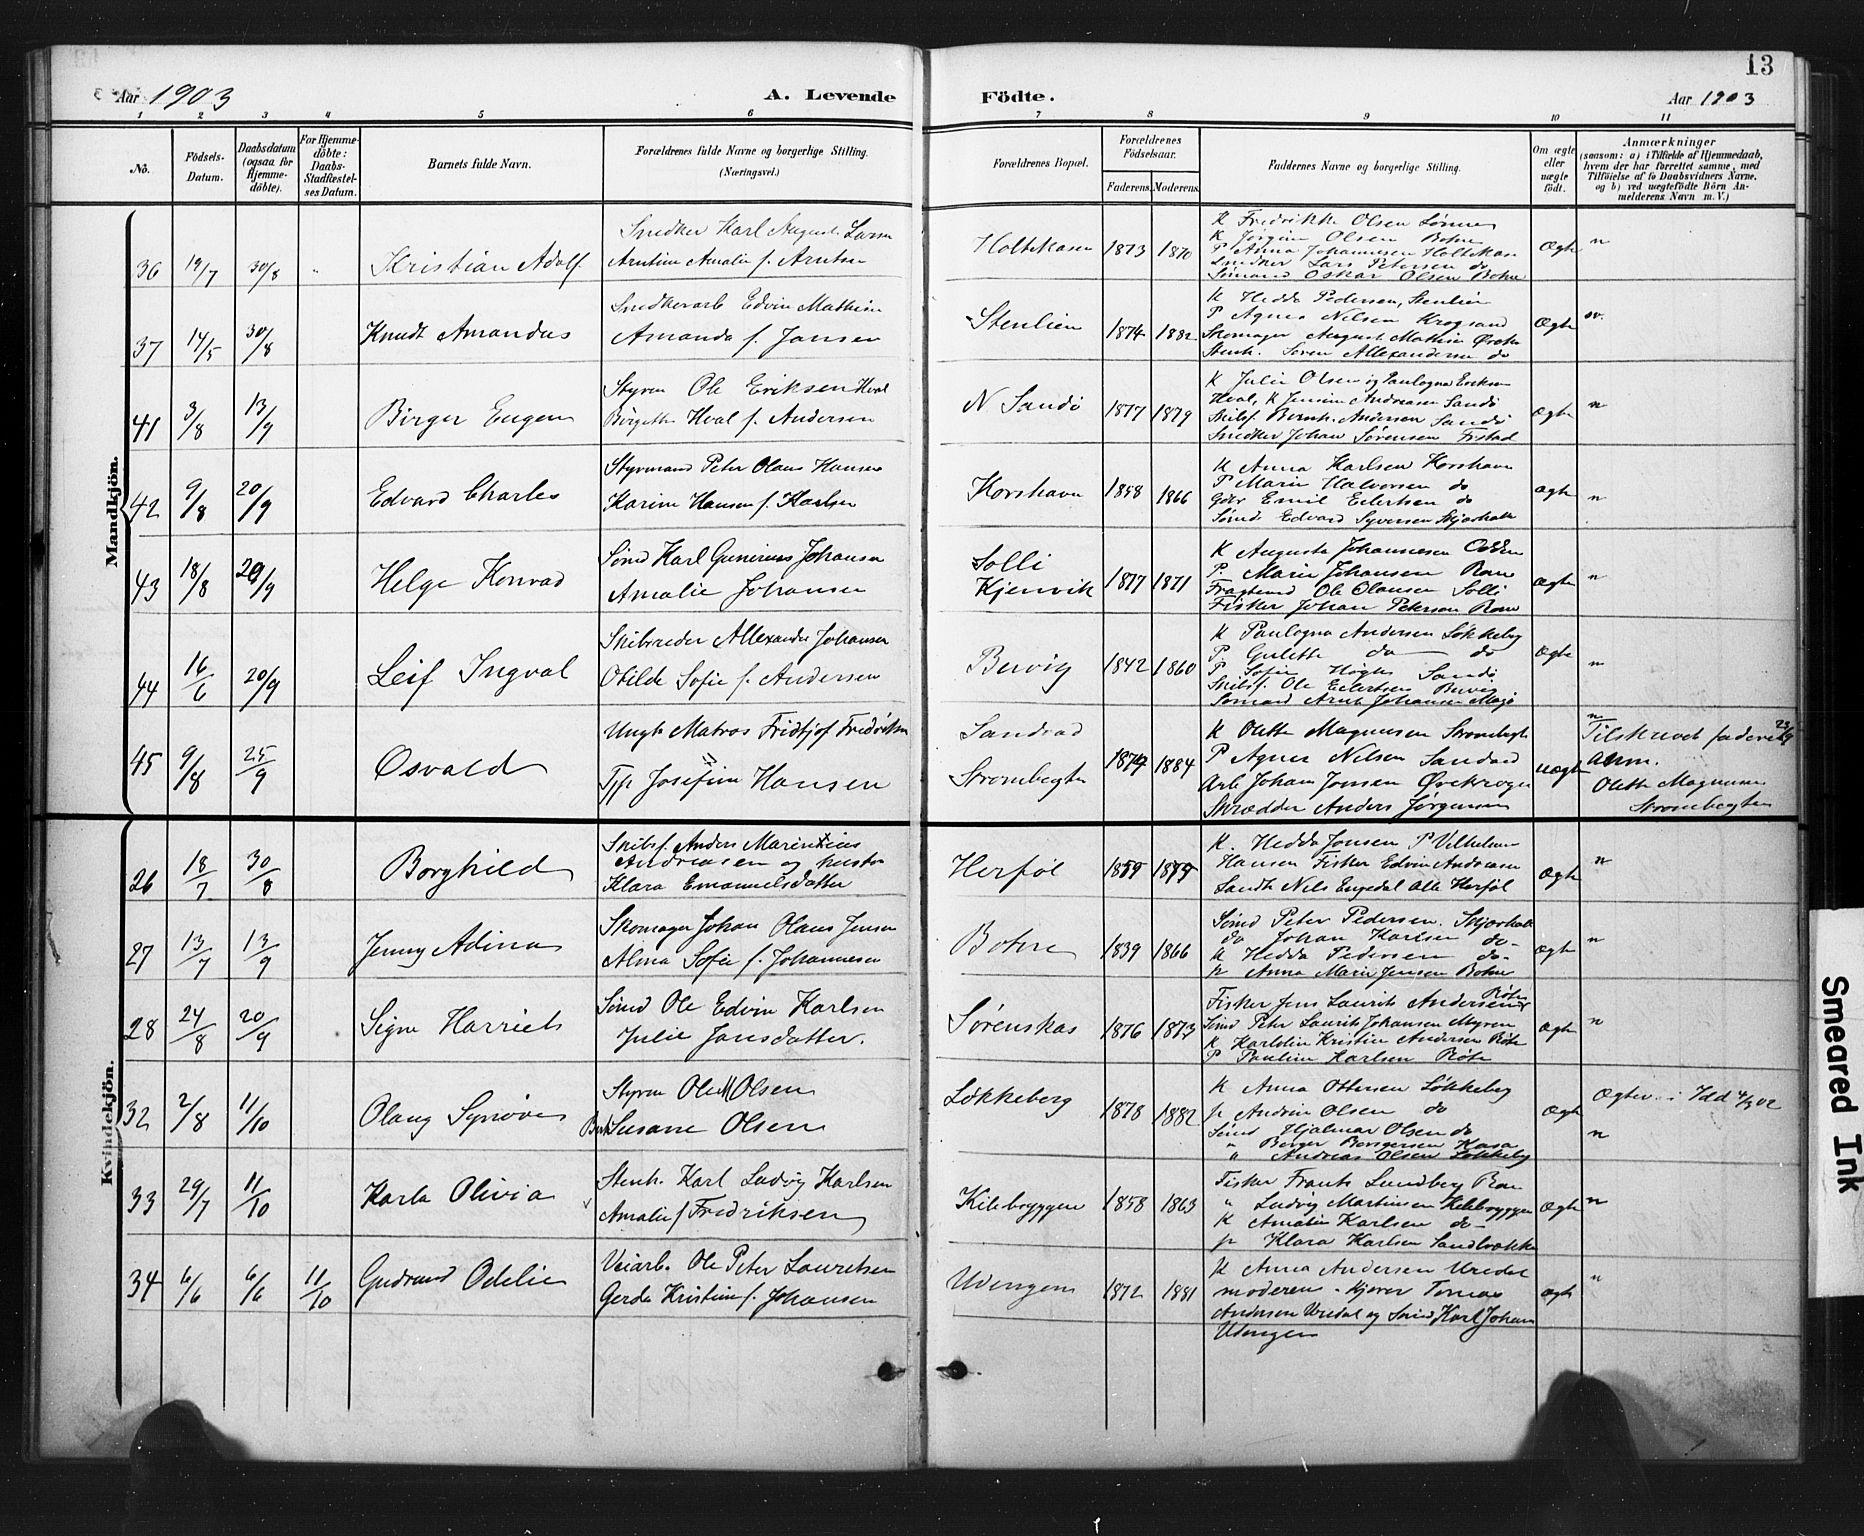 13
Aar 1903 A. Levende Födte. Aar 1903
1 2 3 4 5 6 7 8 9 10 11
No. Födsels-Datum. Daabsdatum (ogsaa for Hjemme-döbte). For Hjemme-döbte: Daabs-Stadfæstel-ses Datum. Barnets fulde Navn. Forældrenes fulde Navne og borgerlige Stilling. (Næringsvei.) Forældrenes Bopæl. Forældrenes Födselsaar. Faderens. Moderens. Faddernes Navne og borgerlige Stilling. Om ægte eller uægte födt. Anmærkninger (saasom: a) i Tilfælde af Hjemmedaab, hvem der har forrettet samme, med Tilföielse af to Daabsvidners Navne. og b) ved uægtefödte Börn An-melderens Navn m. V.)
Mandkjön.
36 19/7 30/8 " Kristian Adolf
Snedker Karl August Larsen
Arntine Amalie f. Arntsen
Holtekasen 1873 1870
K Fredrikke Olsen
K Jörgine Olsen Bohne
P Anna Johannesen Holtekasen
Snedker Lars Petersen do
Sömand Oskar Olsen Bohne
Ægte n
37 14/5 30/8 Knudt Amandus
Snedkerarb Edvin Mathisen
Amanda f. Jansen
Stenlien 1874 1882
K Hedda Pedersen, Stenlien
P Agnes Nilsen Krogsand
Skomager August Mathisen
Stenh. Sören Allexandersen do
Ægte
41 3/8 13/9 Birger Eugen
Styrm Ole Eriksen Hval
Birgethe Hval f. Andersen
N Sandö 1877 1879
K Julie Olsen og Paulogna Eriksen
Hval, K Jensine Andreasen Sandö
Skibsf. Bernh. Andersen Sandö
Snedker Johan Sörensen Fistad
Ægte n
42 9/8 20/9 Edvard Charles
Styrmand Peter Olaus Hansen
Karine Hansen f. Karlsen
Korshavn 1858 1866
K Anna Karlsen Korshavn
P Marie Halvorsen do
Emil Eilertsen do
Sömd Edvard Syversen Skjærhall
Ægte n
43 18/8 20/9 Helge Konrad
Sömd Karl Gunerius Johansen
Amalie Johansen
Solli
Kjenvik
1877 1871
K Augusta Johannesen
P. Marie Johansen
Ole Olausen Solli
Fisker Johan Petersen
Ægte n
44 16/6 20/9 Leif Ingval
Skibsreder Allexander Johansen
Otilde Sofie f. Andersen
Bervig 1842 1860
K Paulogna Andersen Lökkeberg
P Gulette do do
P Sofie Sandö
Skibsf. Ole Eilertsen Bervig
Sömand Arnt Johansen
Ægte n
45 9/8 25/9 Osvald
Ungk Matros Fridtjof Fredriksen
Tjp Josefine Hansen
Sandvad
Strømbegten
1879 1884
K Olette Magnussen Strømbegt
P Agnes Nilsen Sandvad
Arb Johan Jonsen
Skrædder Anders Jörgensen
uægte
n
Tilskrevet faderen 23/9
anm.
Olette Magnussen
Strømbegten
Kvindekjön.
26 18/7 30/8 Borghild
Skibsf. Anders Marentius
Andreasen og hustru
Klara Emanuelsdatter
Herföl
K. Hedda Jonsen P Vilhelmine
Hansen Fisker Edvin Andreasen
Nils Engedal Alle Herföl
Ægte n
27 13/7 13/9 Jenny Adina
Skomager Johan Olaus Jensen
Alma Sofie f. Johannesen
Bohne 1839 1866
Sömd Peter Pedersen. Skjærhall
do Johan Karlsen do-
K Hedda Pedersen do-
p Anna Marie Jensen Bohne
Ægte n
28 24/8 20/9 Signe Harriet
Sömd Ole Edvin Karlsen
Julie Jansdatter.
Sørenskas 1876 1873
Fisker Jens Laurits Andersen Röte
Sömd Peter Laurits Johansen Myren
K Kristine Andersen Röte
P Pauline Karlsen Röte
Ægte n
32 2/8 11/10 Olaug Synöve
Styrm Ole M Olsen
Susane Olsen
Lökkeberg 1878 1882
K Anna Ottersen Lökkeberg
p Andrine Olsen do
Sömd Hjalmar Olsen do
" Borger Borgersen Kasa
" Andreas Olsen Lökkeberg
Ægte Ægtev. i Idd 4/3 02
n
33 29/7 11/10 Karla Olivia
Stenh. Karl Ludvig Karlsen
Amalie f Fredriksen
Kilebryggen 1858 1863
Fisker Frants Lundberg
" Ludvig Martinsen Kilebryggen
K Amalie Karlsen do-
p Klara Karlsen Sandbrække
Ægte n
34 6/6 6/6 11/10 Gudrund Odelie
Veiarb. Ole Peter Lauretsen
Gerda Kristine f. Johansen
Udengen 1872 1881
K Anna Andersen Vredal
moderen - Tomas
Andersen Vredal og Sömd, Karl Johan
Udengen
Ægte n
Smeared Ink